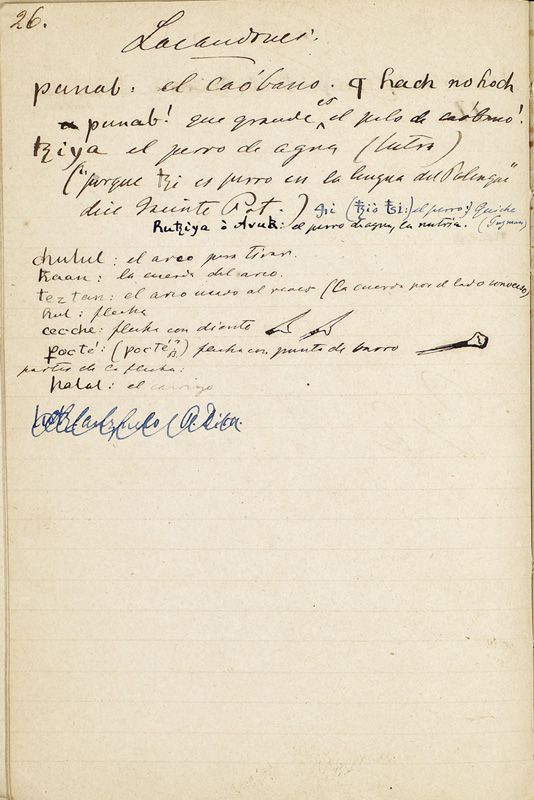 26.
Lacandones.
punab: el caóbano. hach nohoch
punab! que grande es el palo de caóbano!
ꜩiya el perro de agua (lutra)
("porque ꜩi es perro en la lengua del Palenque"
dice Pat.) ꜩi (ꜩió ꜩi:) el perro; Quiche
Ruꜩiya ó Avuk: el perro de agua, la nutria. (Guzman)
chulul: el arco para tirar.
kaan: la cuerda del arco.
teztan: el arco (la cuerda por el lado
hul: flecha
ceoche: flecha con diente
pocté: (pocté) flecha con punta de barro
partes de la flecha:
halal: el carrizo